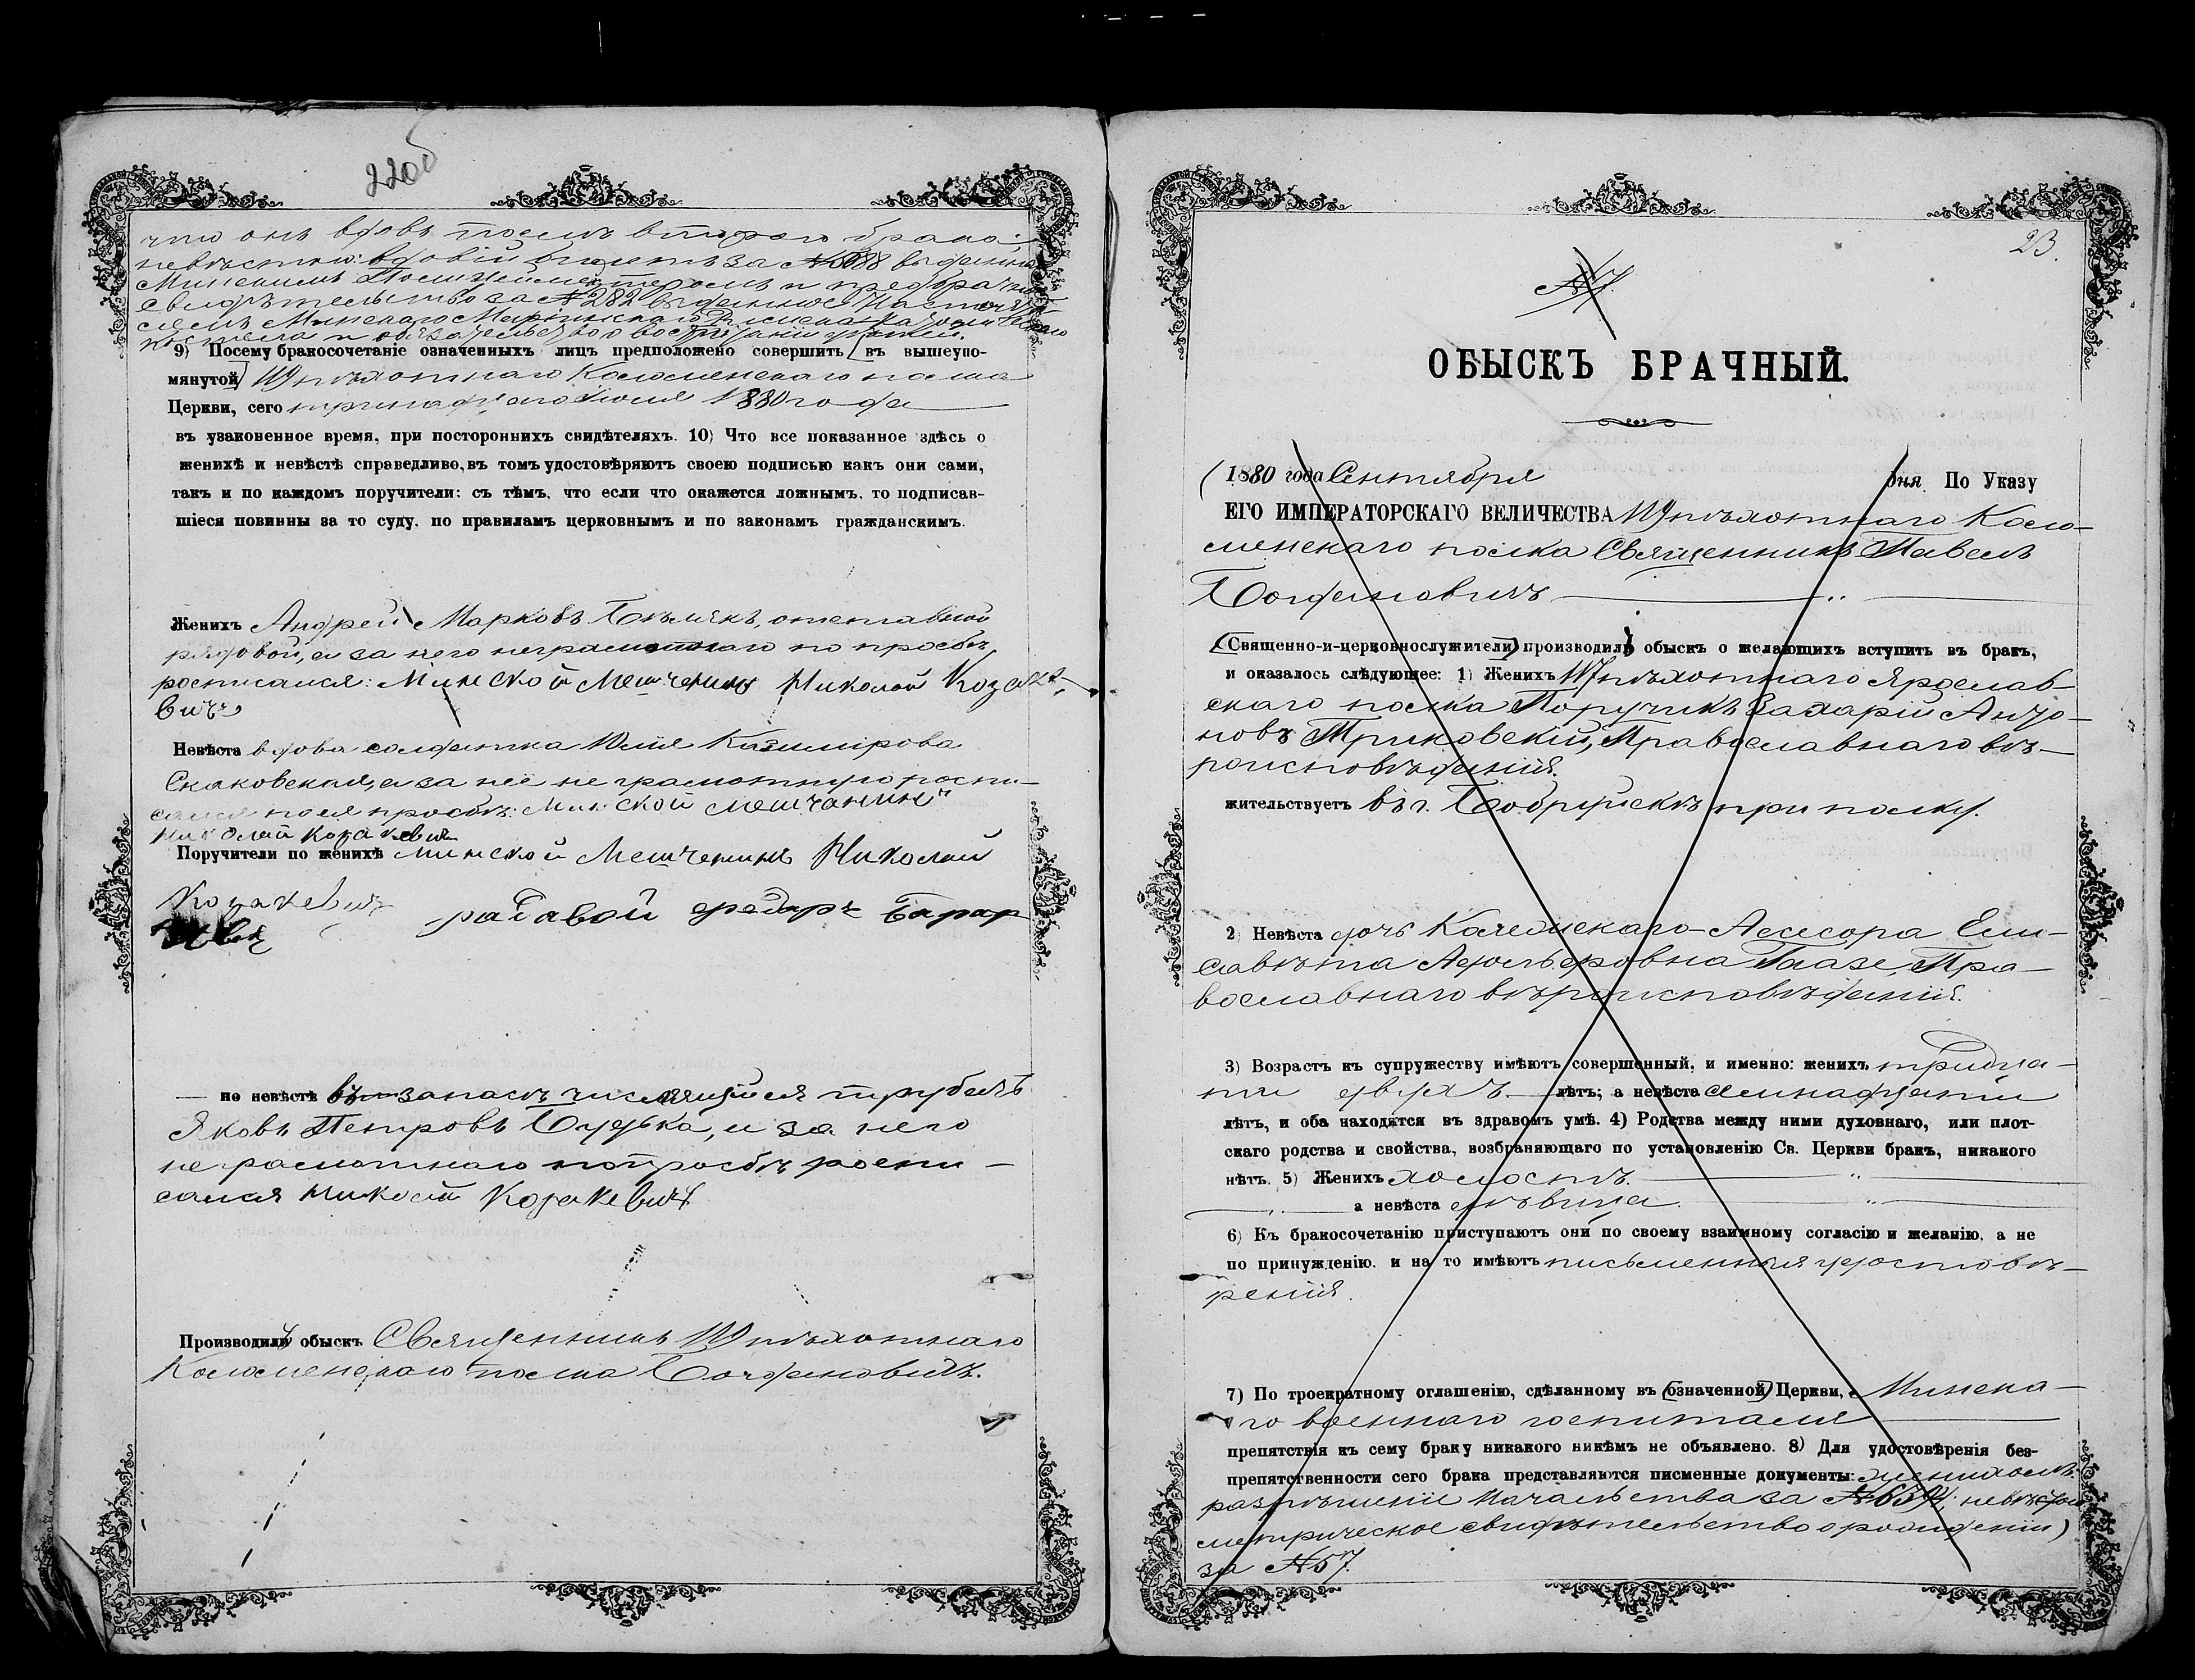 22об
что онъ вдовъ послѣ втораго брака;
невѣстою: вдовій билетъ за №5088 выданный
Минскимъ Полиціймейстеромъ и предбрачное
свидѣтельство за №282 выданное Настояте-
лемъ Минскаго Маріинскаго Римско-Католическаго
костела и обязательство о воспитаніи дѣтей.
9) Посему бракосочетаніе означенныхъ лицъ предположено совершить (въ вышеупо-
мянутой) 119 пѣхотнаго Коломенскаго полка
Церкви, сего тринадцатаго Іюля 1880 года
въ узаконенное время, при постороннихъ свидѣтеляхъ. 10) Что все показанное здѣсь о
женихѣ и невѣстѣ справедливо, въ томъ удостовѣряютъ своею подписью какъ они сами,
такъ и по каждомъ поручители: съ тѣмъ, что если что окажется ложнымъ, то подписав-
шіеся повинны за то суду, по правиламъ церковнымъ и по законамъ гражданскимъ.
Женихъ Андрей Марковъ отставной
рядовой, а за него неграмотнаго по просьбѣ
росписался: Минской Мешченинъ Николай Козаке-
вичъ
Невѣста вдова солдатка Юлія Казимірова
Скаковская, а за неё не грамотную роспи-
сался по ея просьбѣ: Минской мешчанинъ
Николай Козакевич
Поручители по женихѣ Минской Мешченинъ Николай
Козакевичъ радавой
по невѣстѣ въ запасѣ числящійся трубачъ
Яковъ Петровъ Будька, и за него
неграмотнаго по просьбѣ роспи-
сался Николай Козакевичъ
Производилъ обыскъ Священникъ 119 пѣхотнаго
Коломенскаго полка Богдановичъ.
23.
№7.
ОБЫСКЪ БРАЧНЫЙ.
(1880 года Сентября дня. По Указу
ЕГО ИМПЕРАТОРСКАГО ВЕЛИЧЕСТВА 119 пѣхотнаго Коло-
менскаго полка Священникъ Павелъ
Богдановичъ
(Священно-и-церковнослужители) производилъ обыскъ о желающихъ вступить въ бракъ,
и оказалось слѣдующее: 1) Женихъ 117 пѣхотнаго Ярослав-
скаго полка Поручикъ Захарій Анто-
новъ Триковскій, Православнаго вѣ-
роисповѣданія.
жительствуетъ въ г. Бобруйскѣ при полку.
2) Невѣста дочь Коллежскаго Ассесора Ели-
савѣта Адольфовна Гаазе, Пра-
вославнаго вѣроисповѣданія.
3) Возрастъ къ супружеству имѣютъ совершенный, и именно: женихъ тридца-
ти двухъ лѣтъ; а невѣста семнадцати
лѣтъ, и оба находятся въ здравомъ умѣ. 4) Родства между ними духовнаго, или плот-
скаго родства и свойства, возбраняющаго по установленію Св. Церкви бракъ, никакого
нѣтъ. 5) Женихъ холостъ.
а невѣста дѣвица.
6) Къ бракосочетанію приступаютъ они по своему взаимному согласію и желанію, а не
по принужденію. и на то имѣютъ письменныя удостовѣ-
ренія.
7) По троекратному оглашенію, сдѣланному въ (означенной) Церкви, Минска-
го военнаго госпиталя
препятствія къ сему браку никакого никѣмъ не объявлено. 8) Для удостовѣренія без-
препятственности сего брака представляются писменные документы: женихомъ:
разрѣшеніе Начальства за невѣстой
метрическое свидѣтельство о рожденіи)
за №57.